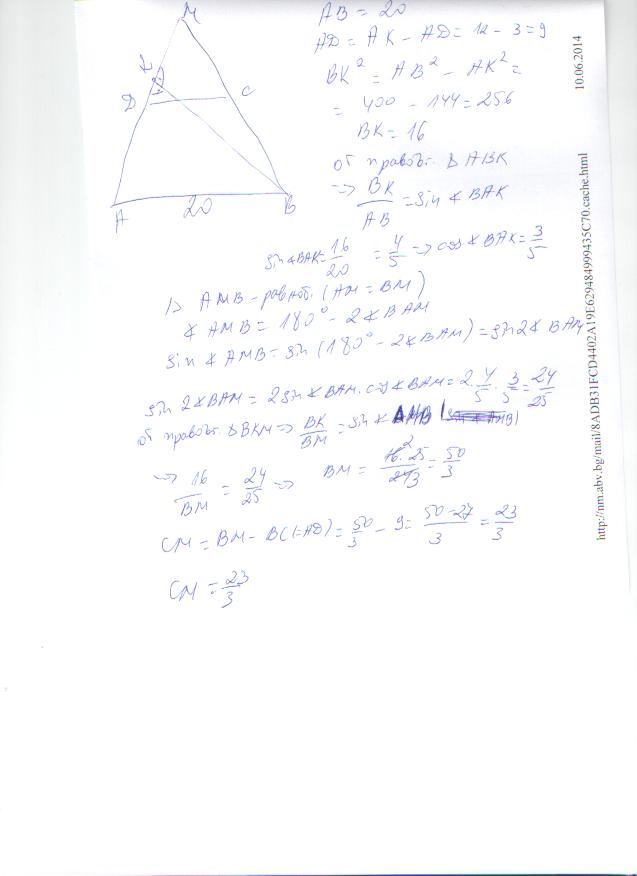 M
K
D
C
A
20
B
AB = 20
AD = AK - AD = 12 - 3 = 9
BK² = AB² - AK² =
= 400 - 144 = 256
BK = 16
от правоъг. Δ ABK
=> BK/AB = sin ∢ BAK
sin ∢ BAK = 16/20 = 4/5 => cos ∢ BAK = 3/5
Δ AMB - равноб. (AM = BM)
∢ AMB = 180° - 2∢ BAM
sin ∢ AMB = sin (180° - 2∢ BAM) = sin 2∢ BAM
sin 2∢ BAM = 2 sin ∢ BAM . cos ∢ BAM = 2 . 4/5 . 3/5 = 24/25
от правоъг. Δ BKM => BK/BM = sin ∢ AMB
=> 16/BM = 24/25 => BM = 16² . 25/24 3 = 50/3
CM = BM - BC (= AD) = 50/3 - 9 = 50 - 27/3 = 23/3
CM = 23/3
10.06.2014
http://nm.abv.bg/mail/8ADB31FCD4402A19E629484999435C70.cache.html